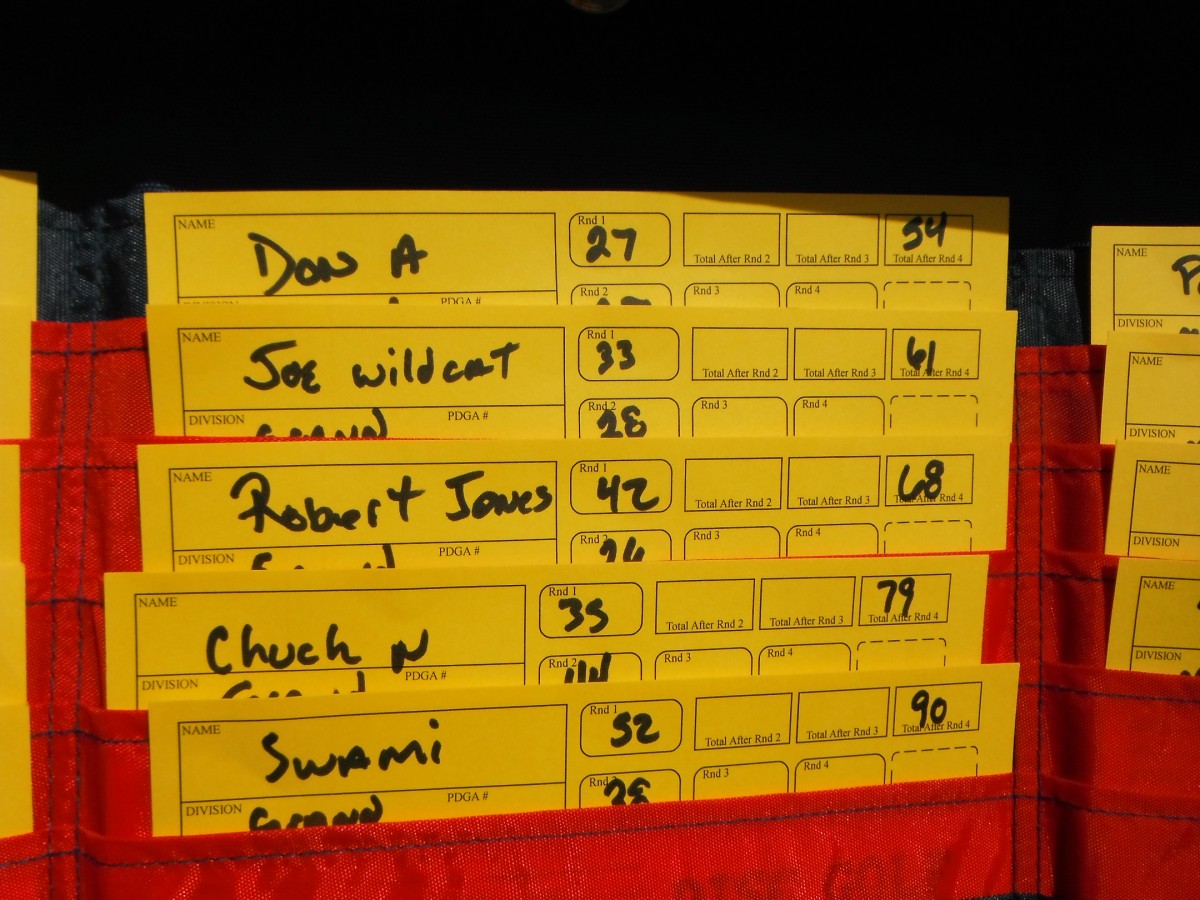 NAME
Don A
Rnd 1
27
Total After Rnd 2
Total After Rnd 3
54
Total After Rnd 4
PDGA #
Rnd 2
Rnd 3
Rnd 4
NAME
Joe Wildcat
Rnd 1
33
Total After Rnd 2
Total After Rnd 3
61
Total After Rnd 4
DIVISION
PDGA #
Rnd 2
28
Rnd 3
Rnd 4
NAME
Robert Jones
Rnd 1
42
Total After Rnd 2
Total After Rnd 3
68
Total After Rnd 4
DIVISION
PDGA #
Rnd 2
26
Rnd 3
Rnd 4
NAME
Chuck N
Rnd 1
35
Total After Rnd 2
Total After Rnd 3
79
Total After Rnd 4
DIVISION
PDGA #
Rnd 2
44
Rnd 3
Rnd 4
NAME
Swami
Rnd 1
52
Total After Rnd 2
Total After Rnd 3
90
Total After Rnd 4
DIVISION
PDGA #
Rnd 2
38
Rnd 3
Rnd 4
NAME
DIVISION
NAME
DIVISION
NAME
DIVISION
NAME
DIVISION
DISC GOLF